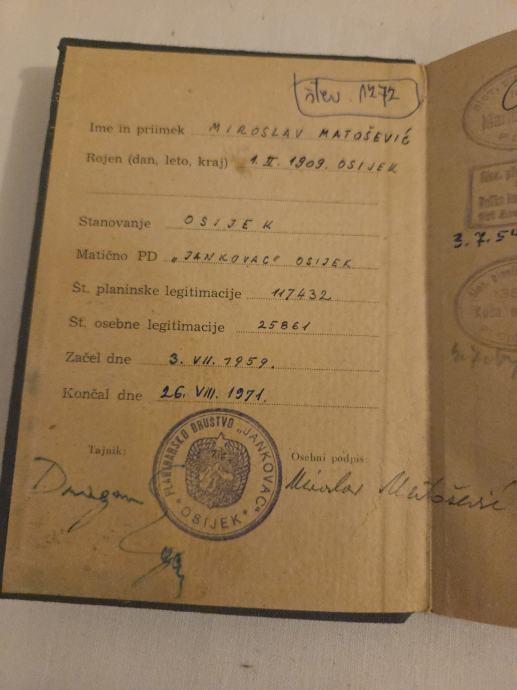 štev. 1272
Ime in priimek MIROSLAV MATOŠEVIĆ
Rojen (dan, leto, kraj) 1. II. 1909. OSIJEK
Stanovanje OSIJEK
Matično PD „JANKOVAC" OSIJEK
Št. planinske legitimacije 117432
Št. osebne legitimacije 25861
Začel dne 3. VII. 1959.
Končal dne 26. VIII. 1971.
Tajnik:
Osebni podpis:
PLANINARSKO DRUSTVO „JANKOVAC"
OSIJEK
Dragan
Miroslav Matošević
3.7.54